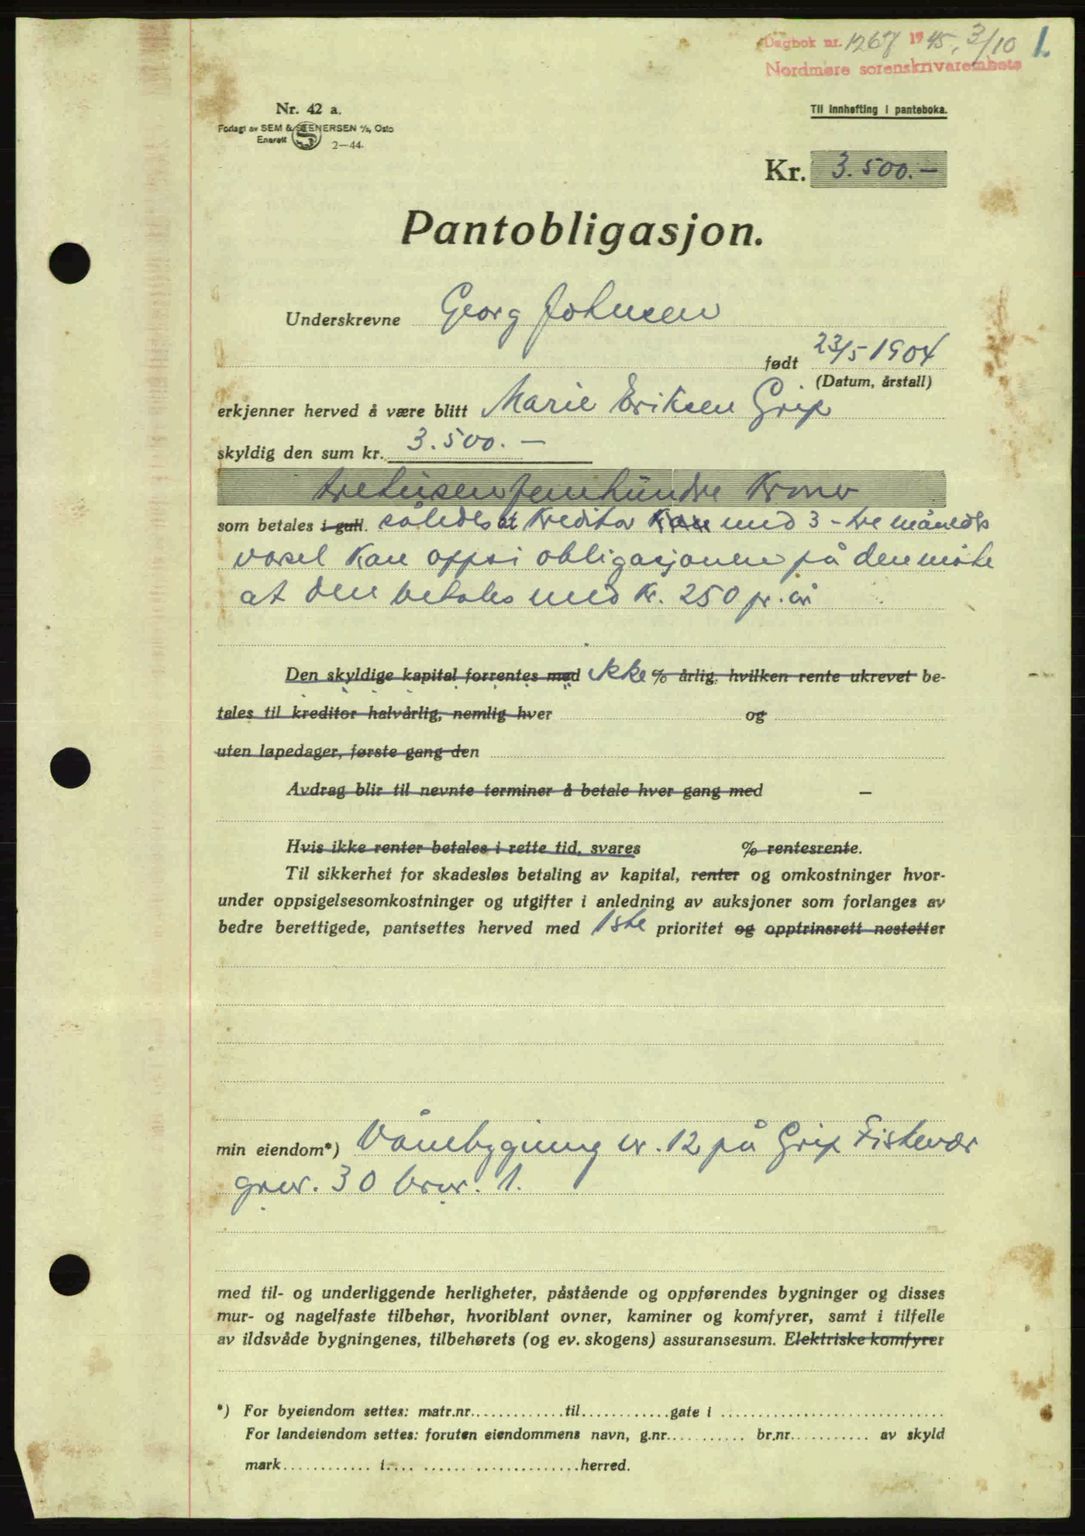 Dagbok nr. 1267 1945, 3/10 1.
Nordmøre sorenskriverembete
Nr. 42 a.
Til innhefting i panteboka.
Forlagt av SEM & STENERSEN A/S, Oslo
Enerett 2—44.
Kr. 3.500.—
Pantobligasjon.
Underskrevne Georg Johnsen
født 23/5 1904
(Datum, årstall)
erkjenner herved å være blitt Marie Eriksen Grip
skyldig den sum kr. 3.500.—
tretusenfemhundre Kroner
som betales i gull. således at Kreditor kan med 3 - tre måneds
varsel kan oppsi obligasjonen på den måte
at den betales med Kr. 250 pr. år
Den skyldige kapital forrentes med ikke % årlig, hvilken rente ukrevet be-
tales til kreditor halvårlig, nemlig hver og
uten løpedager, første gang den
Avdrag blir til nevnte terminer å betale hver gang med —
Hvis ikke renter betales i rette tid, svares % rentesrente.
Til sikkerhet for skadesløs betaling av kapital, renter og omkostninger hvor-
under oppsigelsesomkostninger og utgifter i anledning av auksjoner som forlanges av
bedre berettigede, pantsettes herved med 1ste prioritet og opptrinsrett nestetter
min eiendom*) Vånebygning nr. 12 på Grip Fiskevær
gnr. 30 brnr. 1.
med til- og underliggende herligheter, påstående og oppførendes bygninger og disses
mur- og nagelfaste tilbehør, hvoriblant ovner, kaminer og komfyrer, samt i tilfelle
av ildsvåde bygningenes, tilbehørets (og ev. skogens) assuransesum. Elektriske komfyrer
*) For byeiendom settes: matr.nr. til gate i
For landeiendom settes: foruten eiendommens navn, g.nr. br.nr. av skyld
mark i herred.